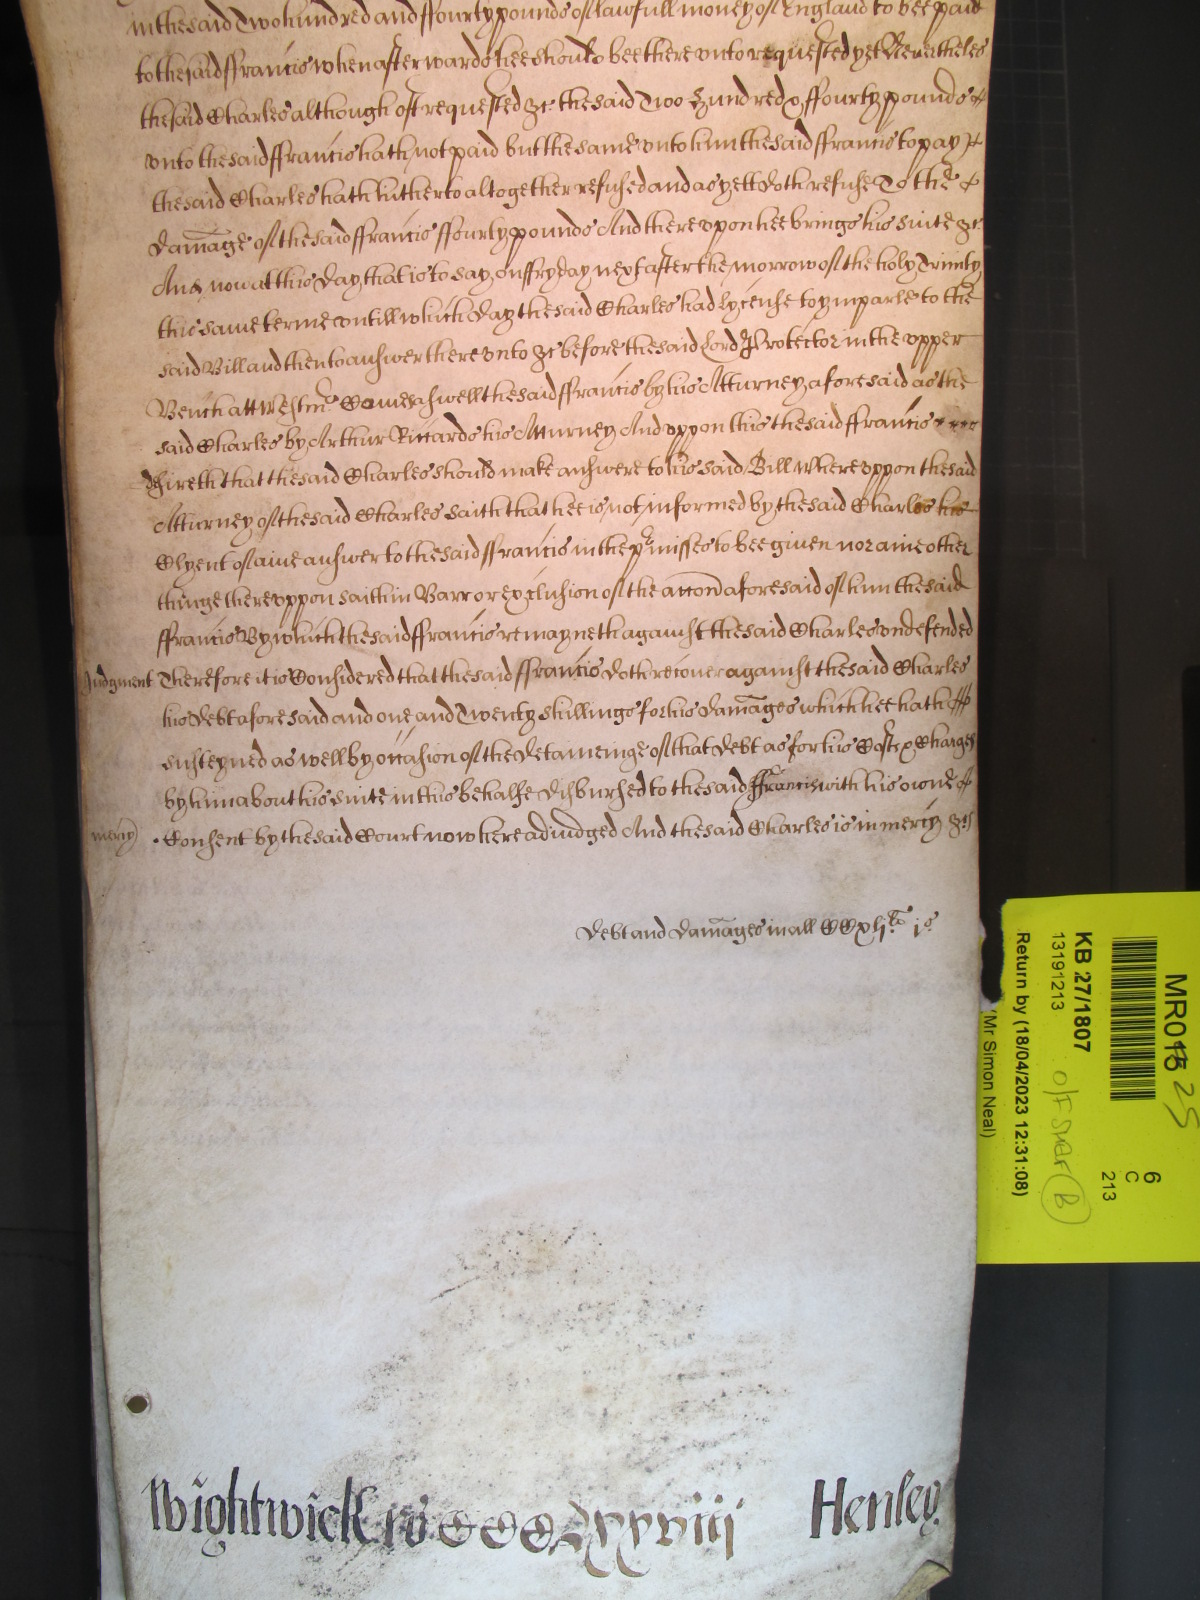 in the said Two hundred and ffourty pounds of lawfull money of England to bee paid
to the said ffrancis when afterwards hee should bee there vnto requested yet Neuertheles
the said Charles although oft requested &c the said Two Hundred & ffourty pounds
vnto the said ffrancis hath not paid but the same vnto him the said ffrancis to pay
the said Charles hath hitherto altogether refused and as yett doth refuse To the
damage of the said ffrancis ffourty pounds And there vpon hee brings his suite &c
And now at this day that is to say on ffryday next after the morrow of the holy Trinity
this same terme vntill which day the said Charles had lycense to ymparle to the
said Bill and then to answer there vnto &c before the said Lord Protector in the vpper
Bench att Westmr Came aswell the said ffrancis by his Atturney aforesaid as the
said Charles by Arthur Riccards his Atturney And vppon this the said ffrancis
desireth that the said Charles should make answere to his said Bill Where vppon the said
Atturney of the said Charles saith that hee is not informed by the said Charles his
Clyent of anie answer to the said ffrancis in the pmisses to bee giuen nor anie other
thinge there vppon saith in Barr or exclusion of the accon aforesaid of him the said
ffrancis By which the said ffrancis remayneth against the said Charles vndefended
Judgment Therefore it is Considered that the said ffrancis doth recouer against the said Charles
his debt aforesaid and one and Twenty shillings for his damages which hee hath
susteyned as well by occasion of the Detaineinge of that Debt as for his Costs & Charges
by him about his suite in this behalfe disbursed to the said ffrancis with his owne
mercy Consent by the said Court now here adiudged And the said Charles is in mercy &c
Debt and Damages in all CCxlj li js
Wightwick ro CCCCLXXVIII Henley
MR015 25
6
C
213
KB 27/1807
13191213
Return by (18/04/2023 12:31:08)
(Mr Simon Neal)
B